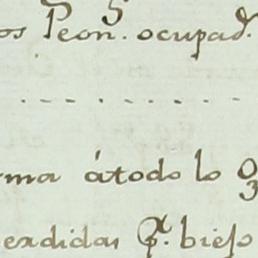 os Peon.ˢ ocupad.ˢ
rma átodo lo
erdidas q.ᵉ